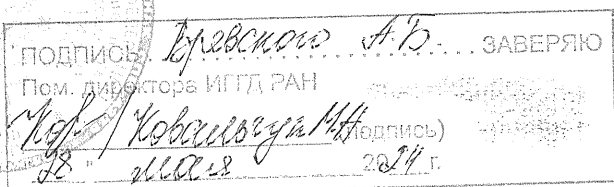 ПОДПИСЬ Вревского А.Б. ЗАВЕРЯЮ
Пом. директора ИГГД РАН
Ков- / Ковальчук М.Н (подпись)
28 " мая 2024 г.